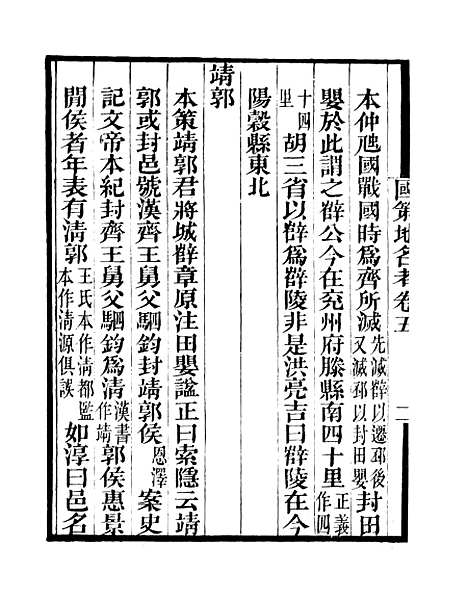 國策地名考卷五 二
本仲虺國戰國時爲齊所滅先滅薛以遷邳後又滅邳以封田嬰封田
嬰於此謂之薛公今在兗州府滕縣南四十里正義作四
十四里胡三省以薛爲薛陵非是洪亮吉曰薛陵在今
陽穀縣東北
靖郭
本策靖郭君將城薛章原注田嬰諡正曰索隱云靖
郭或封邑號漢齊王舅父駟鈞封靖郭侯恩澤案史
記文帝本紀封齊王舅父駟鈞爲清漢書作靖郭侯惠景
閒侯者年表有清郭王氏本作清都監本作清源俱誤如淳曰邑名